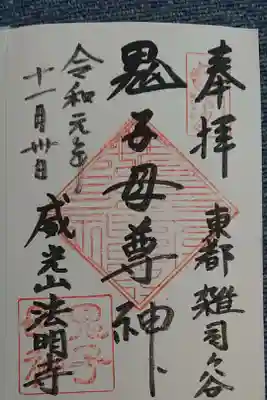 奉拝
東都 雑司ヶ谷
鬼子母尊神
威光山法明寺
令和元年
十一月卅日